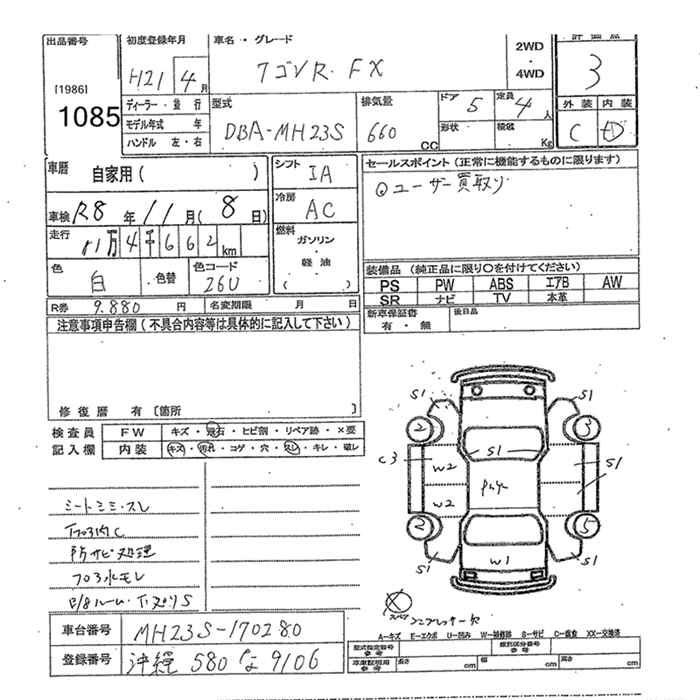 出品番号
[1986]
1085
初度登録年月
H21 4月
車名・グレード
ワゴンR FX
2WD
・
4WD
評価点
3
ディーラー・並行
モデル年式 年
ハンドル 左・右
型式
DBA-MH23S
排気量
660 CC
ドア 5
形状
定員 4人
積載 Kg
外装 内装
C D
車歴 自家用( )
車検 R8年11月(8日)
走行 11万4千662km
色 白
色替
色コード 26U
シフト IA
冷房 AC
燃料
ガソリン
・
軽油
( )
セールスポイント(正常に機能するものに限ります)
ユーザー買取り
装備品(純正品に限り○を付けてください)
PS PW ABS エアB AW
SR ナビ TV 本革
新車保証書
有・無
後日品
R券 9.880円 名変期限 月 日
注意事項申告欄(不具合内容等は具体的に記入して下さい)
修復歴 有〔箇所 〕
検査員
記入欄
FW キズ・飛石・ヒビ割・リペア跡・×要
内装 キズ・汚れ・コゲ・穴・スレ・キレ・破レ
シートシミ・スレ
下回り内C
防サビ処理
フロ水モレ
ルーム・下回りS
S1 S1
2 3
C3 W2 S1 S1
W2
2 5
S1 W1 S1
スペア
コンプレッサー欠
A-キズ E-エクボ U-凹み W-補修跡 S-サビ C-腐食 XX-交換済
車台番号 MH23S-170280
登録番号 沖縄 580 な 9106
型式指定番号
参考
類別区分番号
参考
車庫証明用
参考
長さ cm 幅 cm 高さ cm